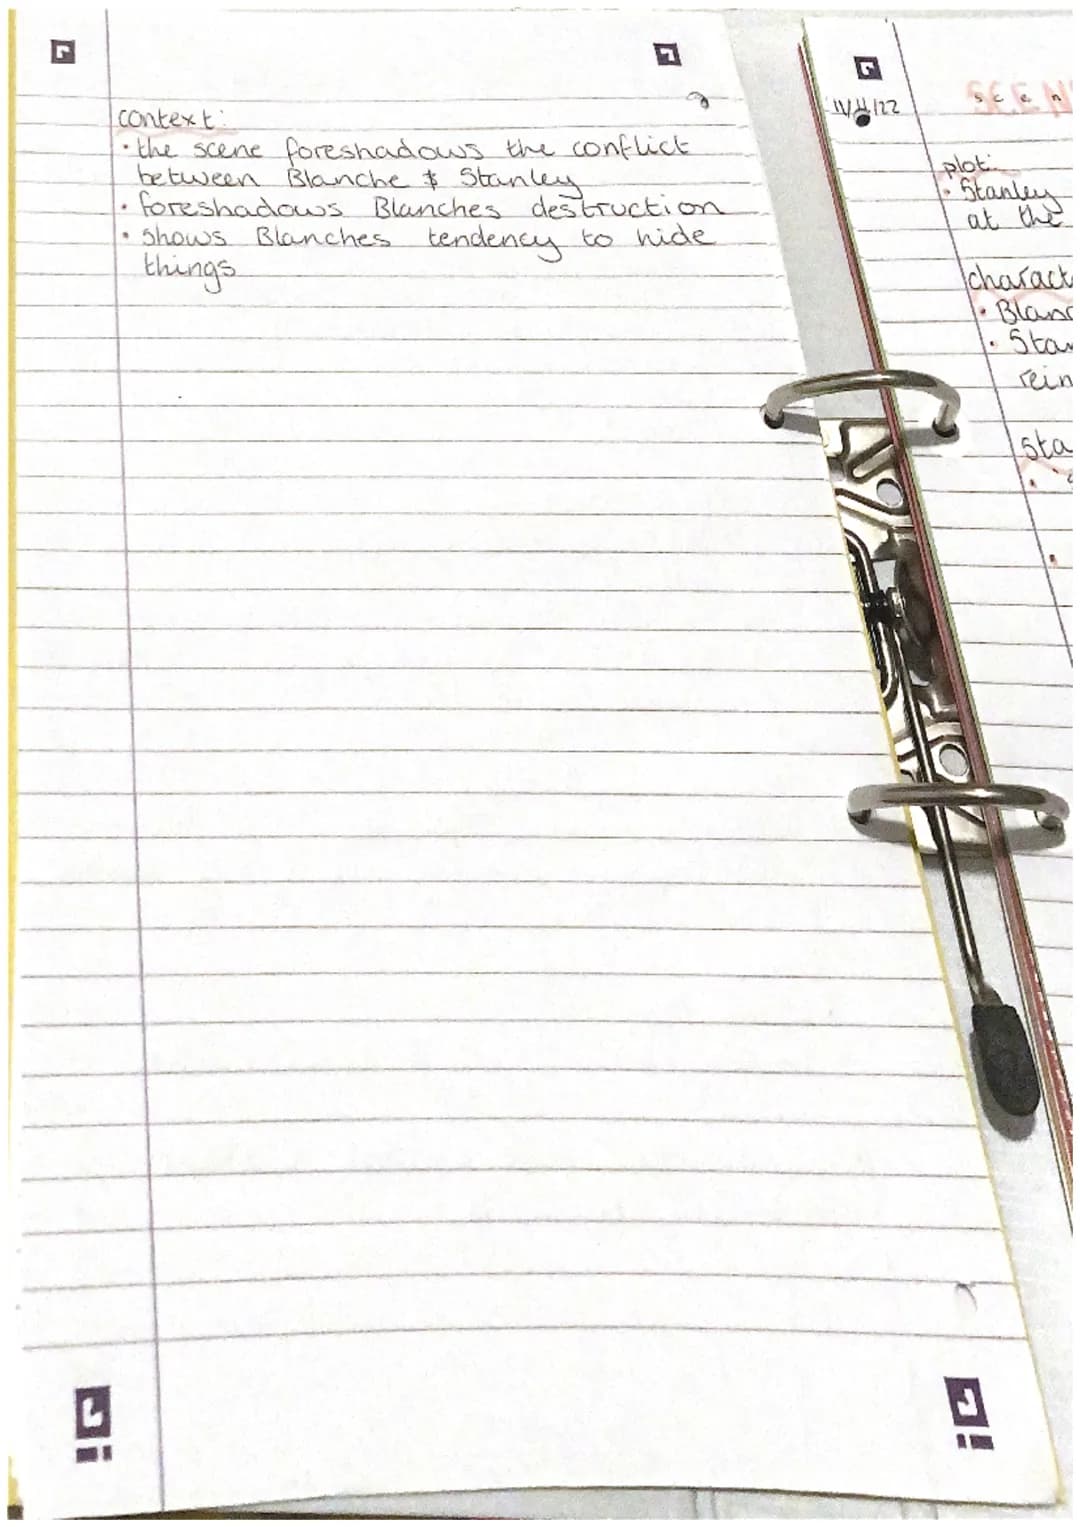 context:
• the scene foreshadows the conflict
between Blanche & Stanley
• foreshadows Blanches destruction
• shows Blanches tendency to hide
things
plot:
• Stanley
at the